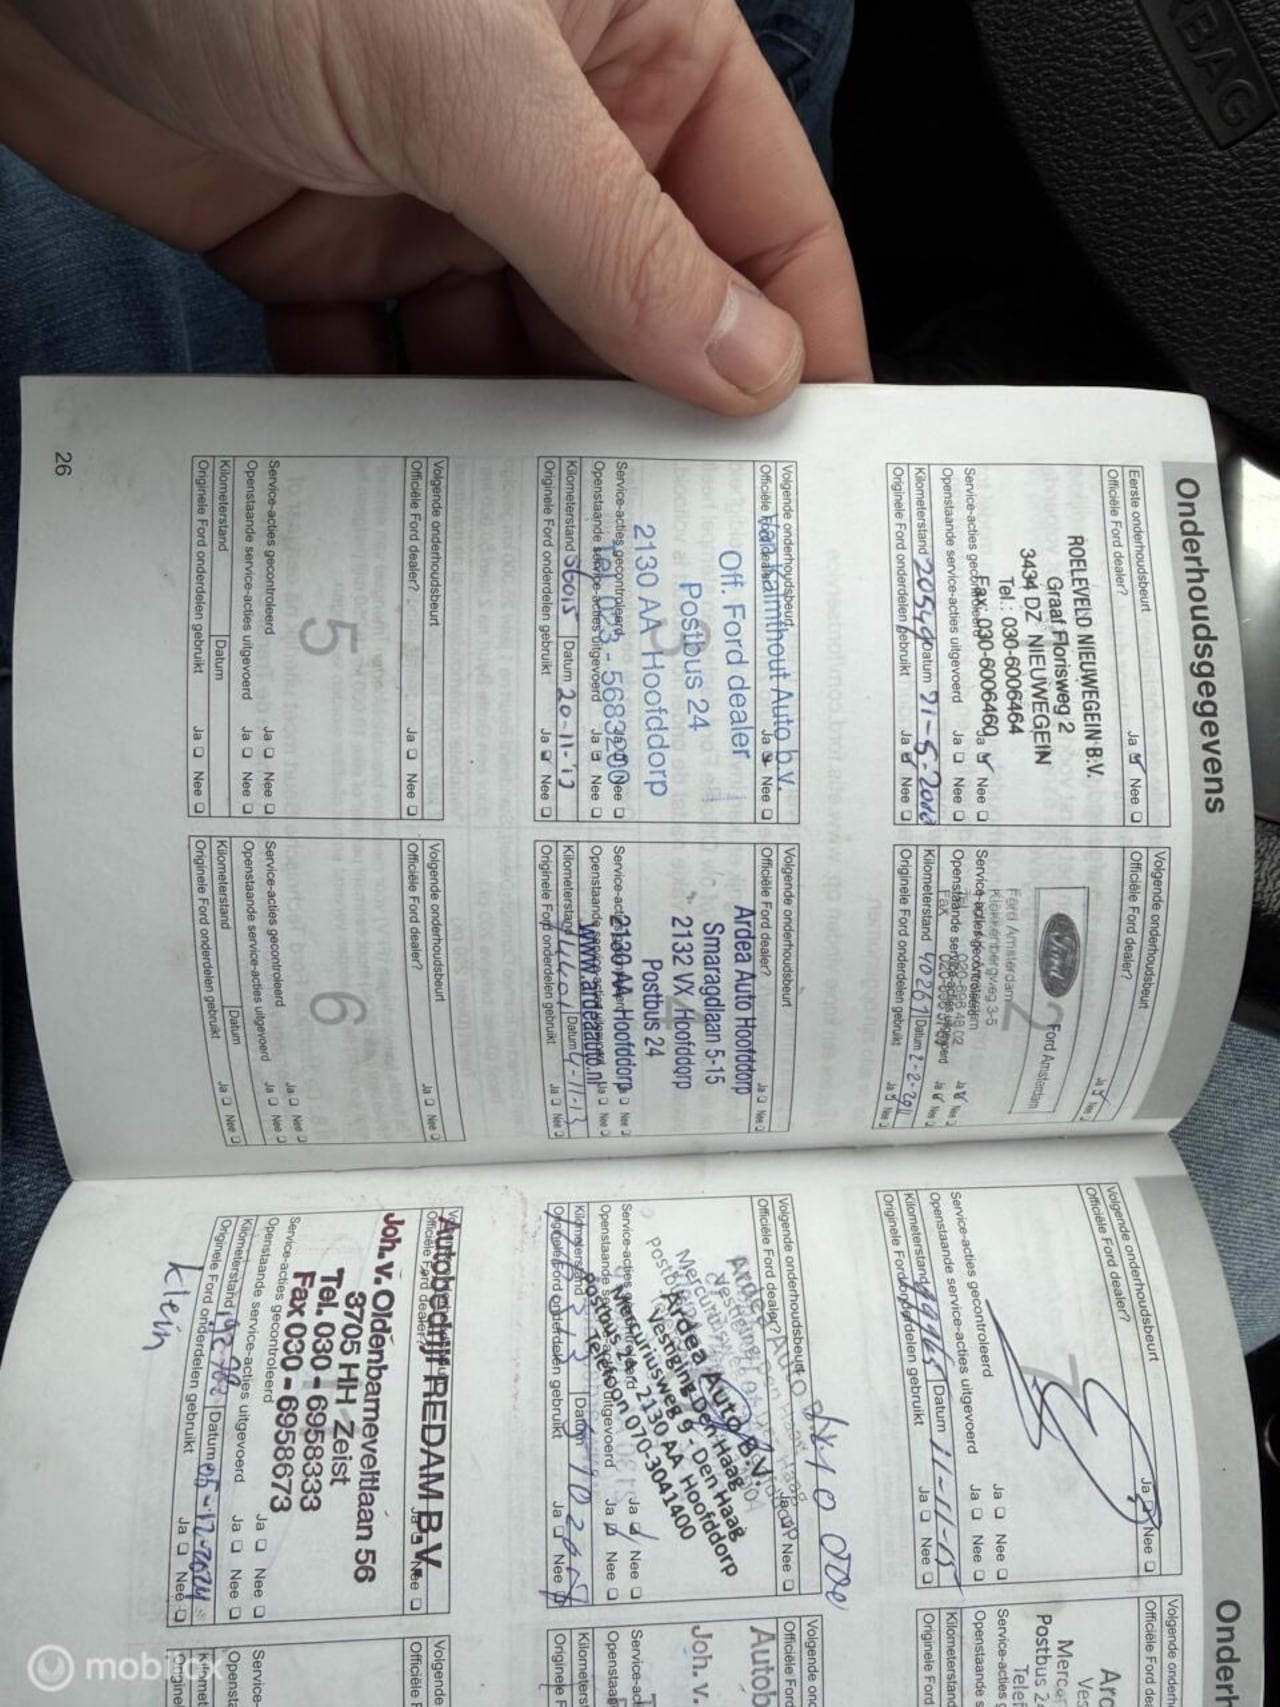 Onderhoudsgegevens
Eerste onderhoudsbeurt
Officiële Ford dealer? Ja Nee
ROELEVELD NIEUWEGEIN B.V.
Graaf Florisweg 2
3434 DZ NIEUWEGEIN
Tel.: 030-6006464
Fax: 030-6006460
Service-acties gecontroleerd Ja Nee
Openstaande service-acties uitgevoerd Ja Nee
Kilometerstand Datum
Originele Ford onderdelen gebruikt Ja Nee
Volgende onderhoudsbeurt
Officiële Ford dealer? Ja Nee
Ford
Ford Amsterdam
2
Ford Amsterdam
Klokkenbergweg 3-5
Service-acties gecontroleerd Ja Nee
Openstaande service-acties uitgevoerd Ja Nee
Fax
Kilometerstand Datum 2-2-2011
Originele Ford onderdelen gebruikt Ja Nee
Volgende onderhoudsbeurt
Officiële Ford dealer? Ja Nee
Van Kalmthout Auto b.v.
Off. Ford dealer
Postbus 24
3
2130 AA Hoofddorp
Tel. 023 - 5683200
Service-acties gecontroleerd Ja Nee
Openstaande service-acties uitgevoerd Ja Nee
Kilometerstand 56015 Datum 20-11-12
Originele Ford onderdelen gebruikt Ja Nee
Volgende onderhoudsbeurt
Officiële Ford dealer? Ja Nee
Ardea Auto Hoofddorp
Smaragdlaan 5-15
2132 VX Hoofddorp
4
Postbus 24
2130 AA Hoofddorp
www.ardeaauto.nl
Service-acties gecontroleerd Ja Nee
Openstaande service-acties uitgevoerd Ja Nee
Kilometerstand Datum 4-11-13
Originele Ford onderdelen gebruikt Ja Nee
Volgende onderhoudsbeurt
Officiële Ford dealer? Ja Nee
5
Service-acties gecontroleerd Ja Nee
Openstaande service-acties uitgevoerd Ja Nee
Kilometerstand Datum
Originele Ford onderdelen gebruikt Ja Nee
Volgende onderhoudsbeurt
Officiële Ford dealer? Ja Nee
6
Service-acties gecontroleerd Ja Nee
Openstaande service-acties uitgevoerd Ja Nee
Kilometerstand Datum
Originele Ford onderdelen gebruikt Ja Nee
26
Volgende onderhoudsbeurt
Officiële Ford dealer? Ja Nee
7
Service-acties gecontroleerd Ja Nee
Openstaande service-acties uitgevoerd Ja Nee
Kilometerstand Datum 11-11-15
Originele Ford onderdelen gebruikt Ja Nee
Volgende onderhoudsbeurt
Officiële Ford dealer? Ja Nee
Ardea Auto B.V.
Vestiging Den Haag
Mercuriusweg 9 - Den Haag
Postbus 24 2130 AA Hoofddorp
Telefoon 070-3041400
Service-acties gecontroleerd Ja Nee
Openstaande service-acties uitgevoerd Ja Nee
Kilometerstand Datum
Originele Ford onderdelen gebruikt Ja Nee
Officiële Ford dealer? Ja Nee
Autobedrijf REDAM B.V.
Joh. v. Oldenbarneveltlaan 56
3705 HH Zeist
Tel. 030 - 6958333
Fax 030 - 6958673
Service-acties gecontroleerd Ja Nee
Openstaande service-acties uitgevoerd Ja Nee
Kilometerstand Datum
Originele Ford onderdelen gebruikt Ja Nee
klein
Onderh
Volgende onderh
Officiële Ford de
Ar
Ves
Merc
Postbus 2
Service-acties
Openstaande s
Kilometerstand
Originele Ford
Volgende ond
Officiële Ford
Autob
Joh. v.
Service-act
Openstaan
Kilometers
Originele F
Volgende
Officiële F
Service-
Openst
Kilomet
Originel
AIRBAG
mobilox